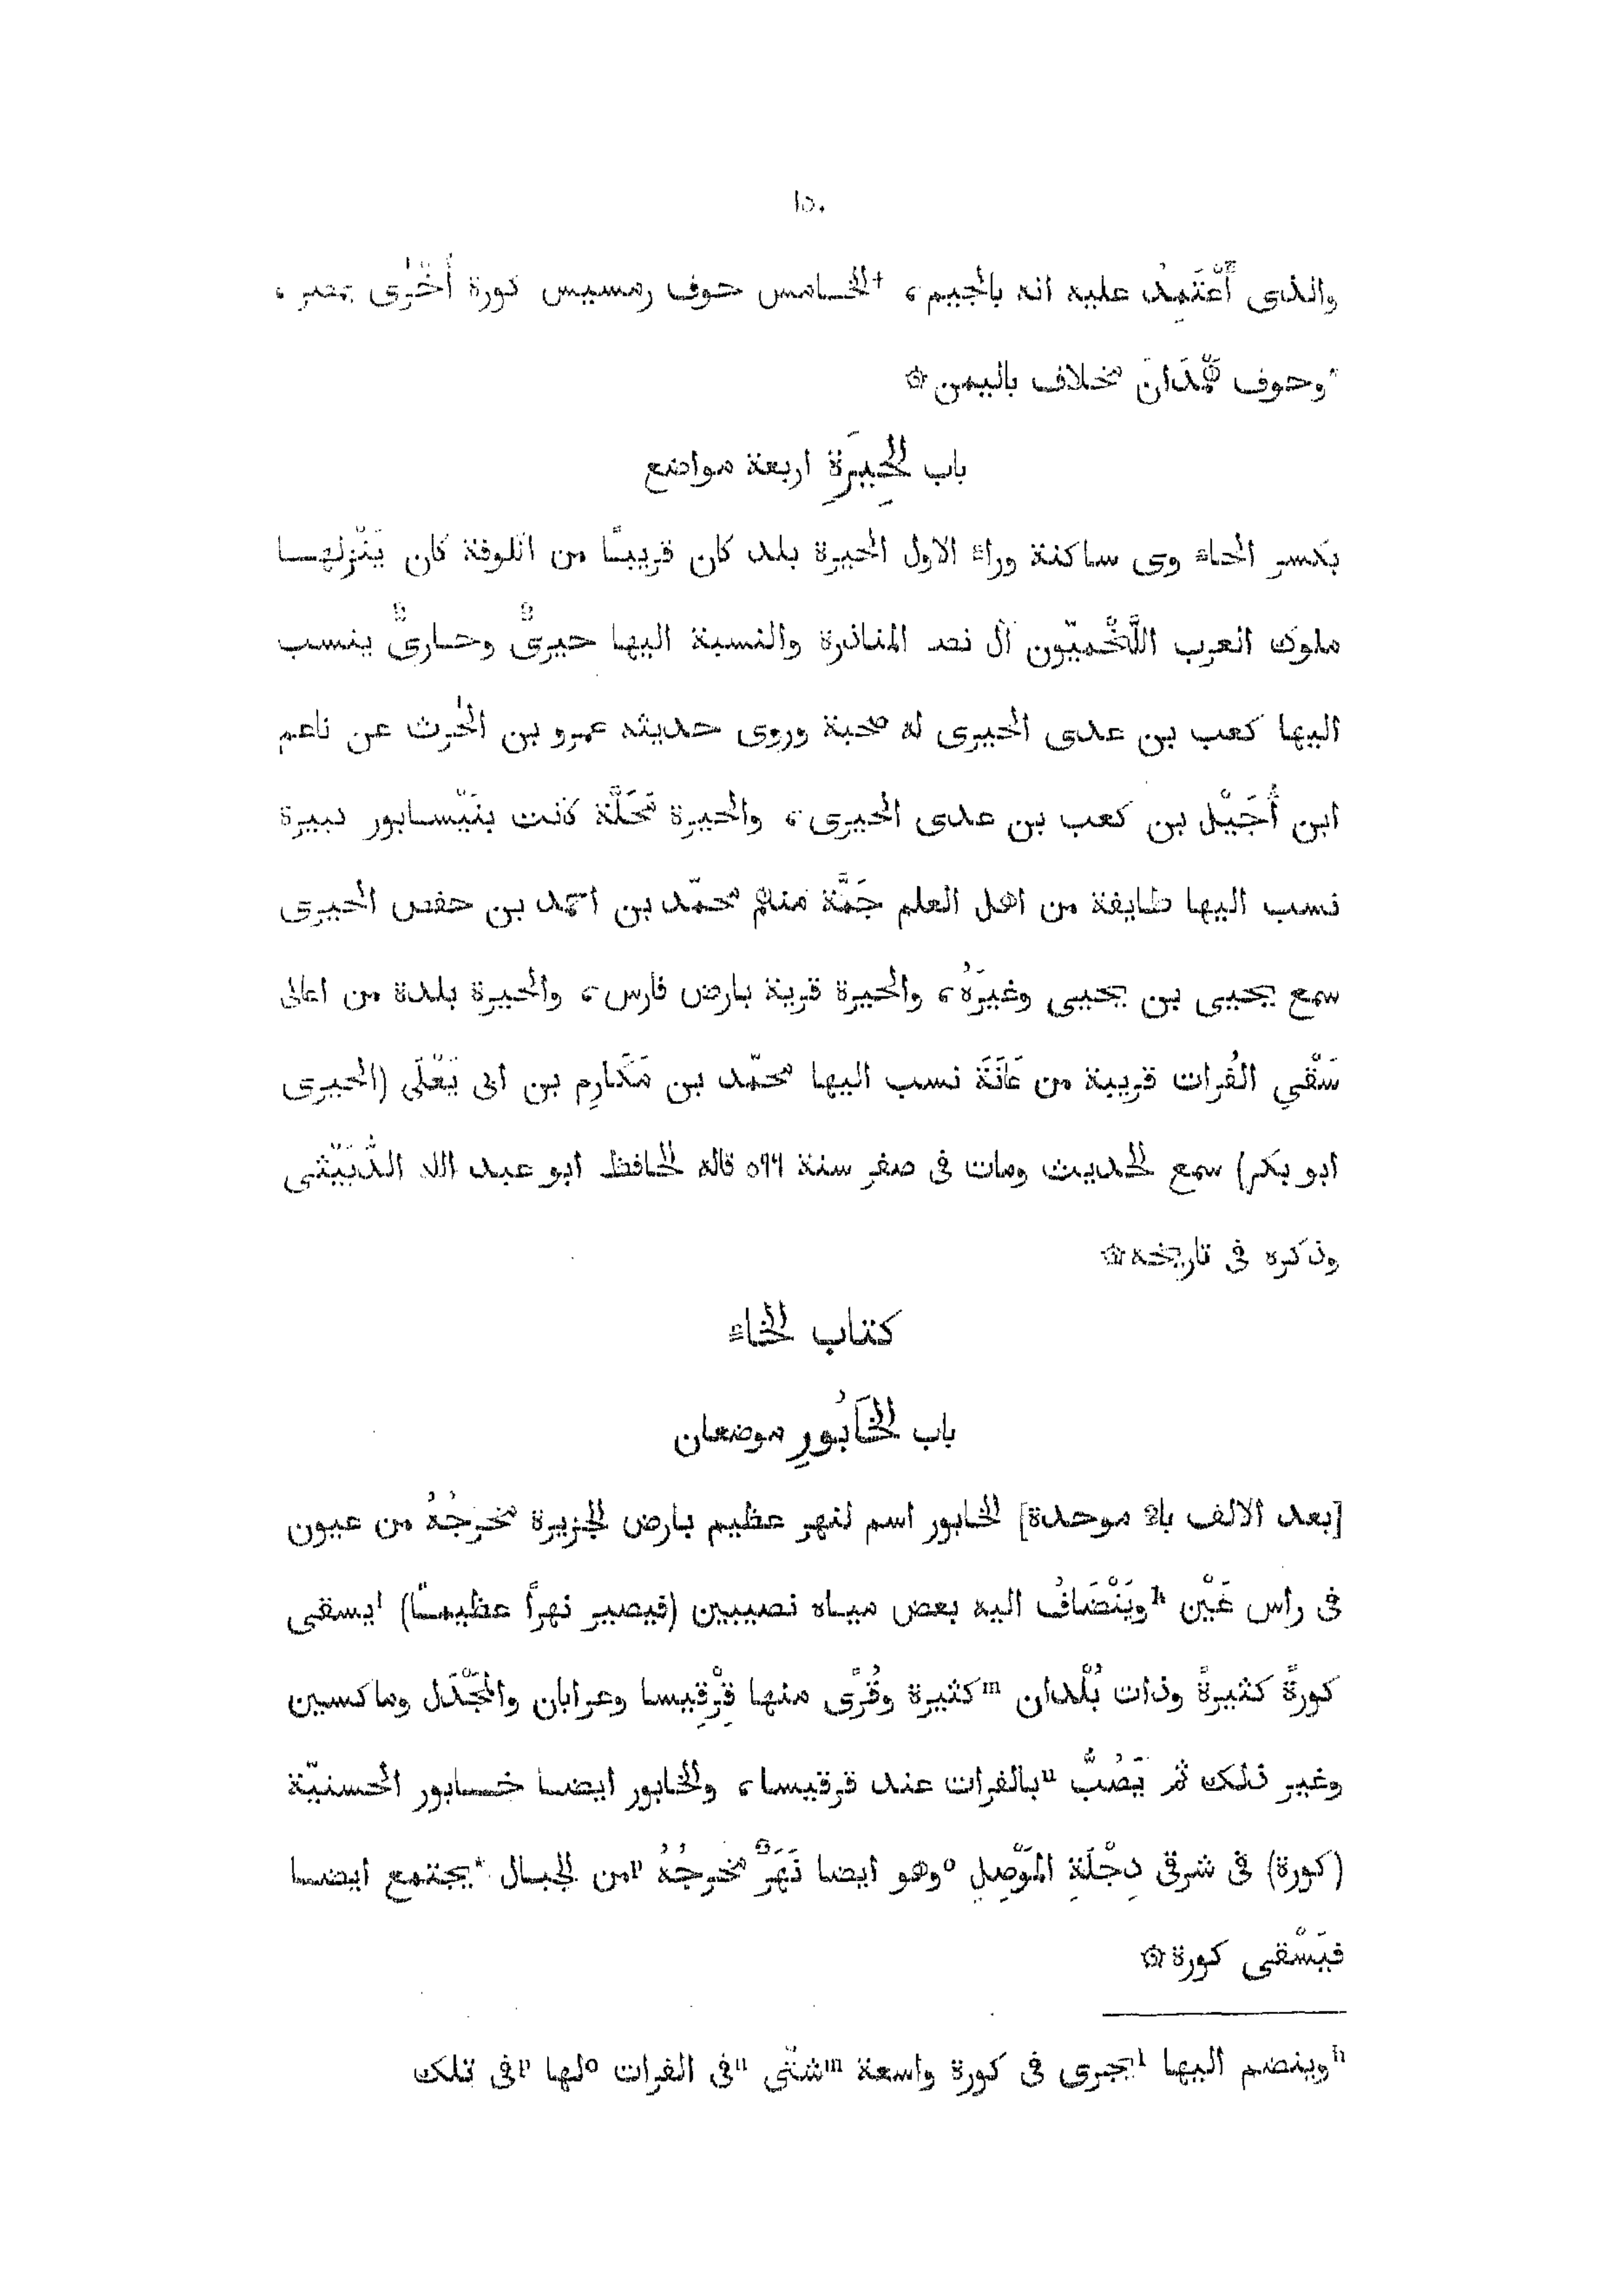 ١٥٠
والذى أَعْتَمِدُ عليه انه بالجيم، †الخامس حوف رمسيس كورة أُخْرٰى بمصر،
*وحوف هَمْدَانَ مخلاف باليمن ۞
باب الحِيرَةِ اربعة مواضع
بكسر الحاء وى ساكنة وراء الاول الحيرة بلد كان قريبًا من الكوفة كان يَنْزلها
ملوك العرب اللَّخْميّون آل نصر المناذرة والنسبة اليها حيرىٌّ وحارىٌّ ينسب
اليها كعب بن عدى الحيرى له صحبة وروى حديثه عمرو بن الحٰرث عن ناعم
ابن أُجَيْل بن كعب بن عدى الحيرى، والحيرة مَحَلَّة كانت بنَيْسابور كبيرة
نسب اليها طايفة من اهل العلم جَمَّة منهم محمّد بن احمد بن حفص الحيرى
سمع يحيى بن يحيى وغيرَهُ، والحيرة قرية بارض فارس، والحيرة بلدة من اعالى
سَقْىِ الفُرات قريبة من عَانَةَ نسب اليها محمّد بن مَكَارِم بن ابى يَعْلَى (الحيرى
ابو بكر) سمع الحديث ومات فى صفر سنة ٥٩٩ قاله الحافظ ابو عبد الله الدُّبَيْثى
وذكره فى تاريخه ۞
كتاب الخاء
باب الخَابُورِ موضعان
[بعد الالف باء موحدة] الخابور اسم لنهر عظيم بارض الجزيرة مخرجُهُ من عيون
فى راس عَيْن kويَنْضَافُ اليه بعض مياه نصيبين (فيصير نهرًا عظيمًا) lيسقى
كورةً كثيرةً وذات بُلْدان mكثيرة وقُرًى منها قِرْقِيسا وعرابان والمَجْدَل وماكسين
وغير ذلك ثم يَصُبُّ nبالفرات عند قرقيسا، والخابور ايضا خابور الحسنيّة
(كورة) فى شرقى دِجْلَةِ المَوْصِلِ oوهو ايضا نَهَرٌ مخرجُهُ pمن الجبال *يجتمع ايضا
فيَسْقى كورة ۞
kوينضم اليها lيجرى فى كورة واسعة mشتّى nفى الفرات oلها pفى تلك